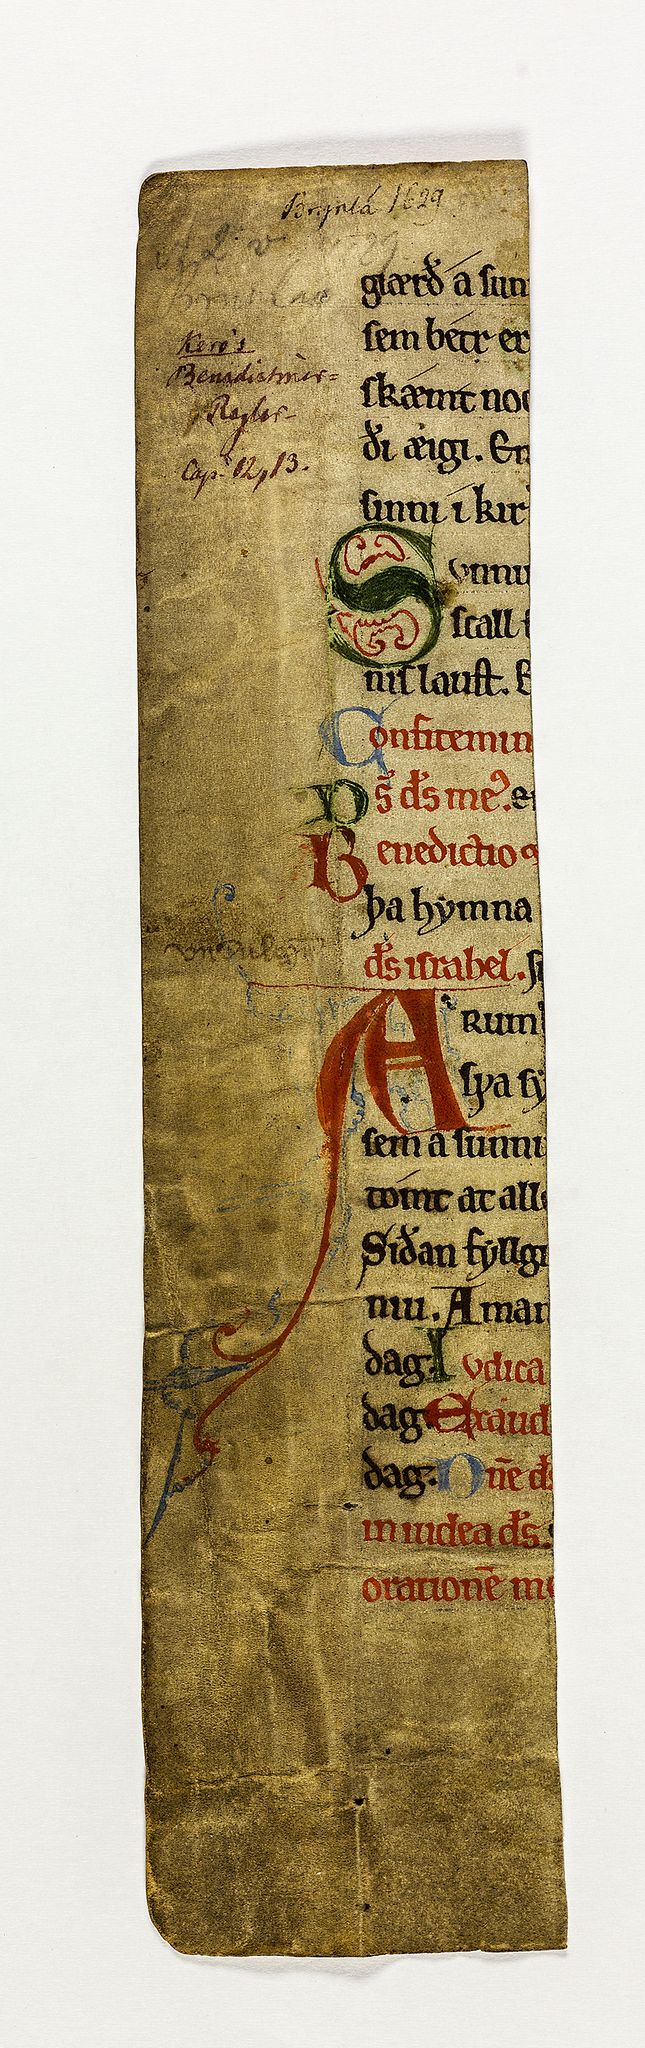 Brynla 1629
Kero's
Benedictiner=
Regler
Cap. 12, 13.
giærð a sun
sem betr er
skæmt noc
ði æigi. En
sinni i kir
Sunnu
scall
nis laust. E
Confitemin
ps ds me. en
Benedictio
þa hymna
ds israhel. s
ARum
sya sy
sem a sunnu
tomt at alle
Siðan fyllgi
mu. A man
dag. Iudica
dag. Exaud
dag. One ds
in iudea ds.
orationē me